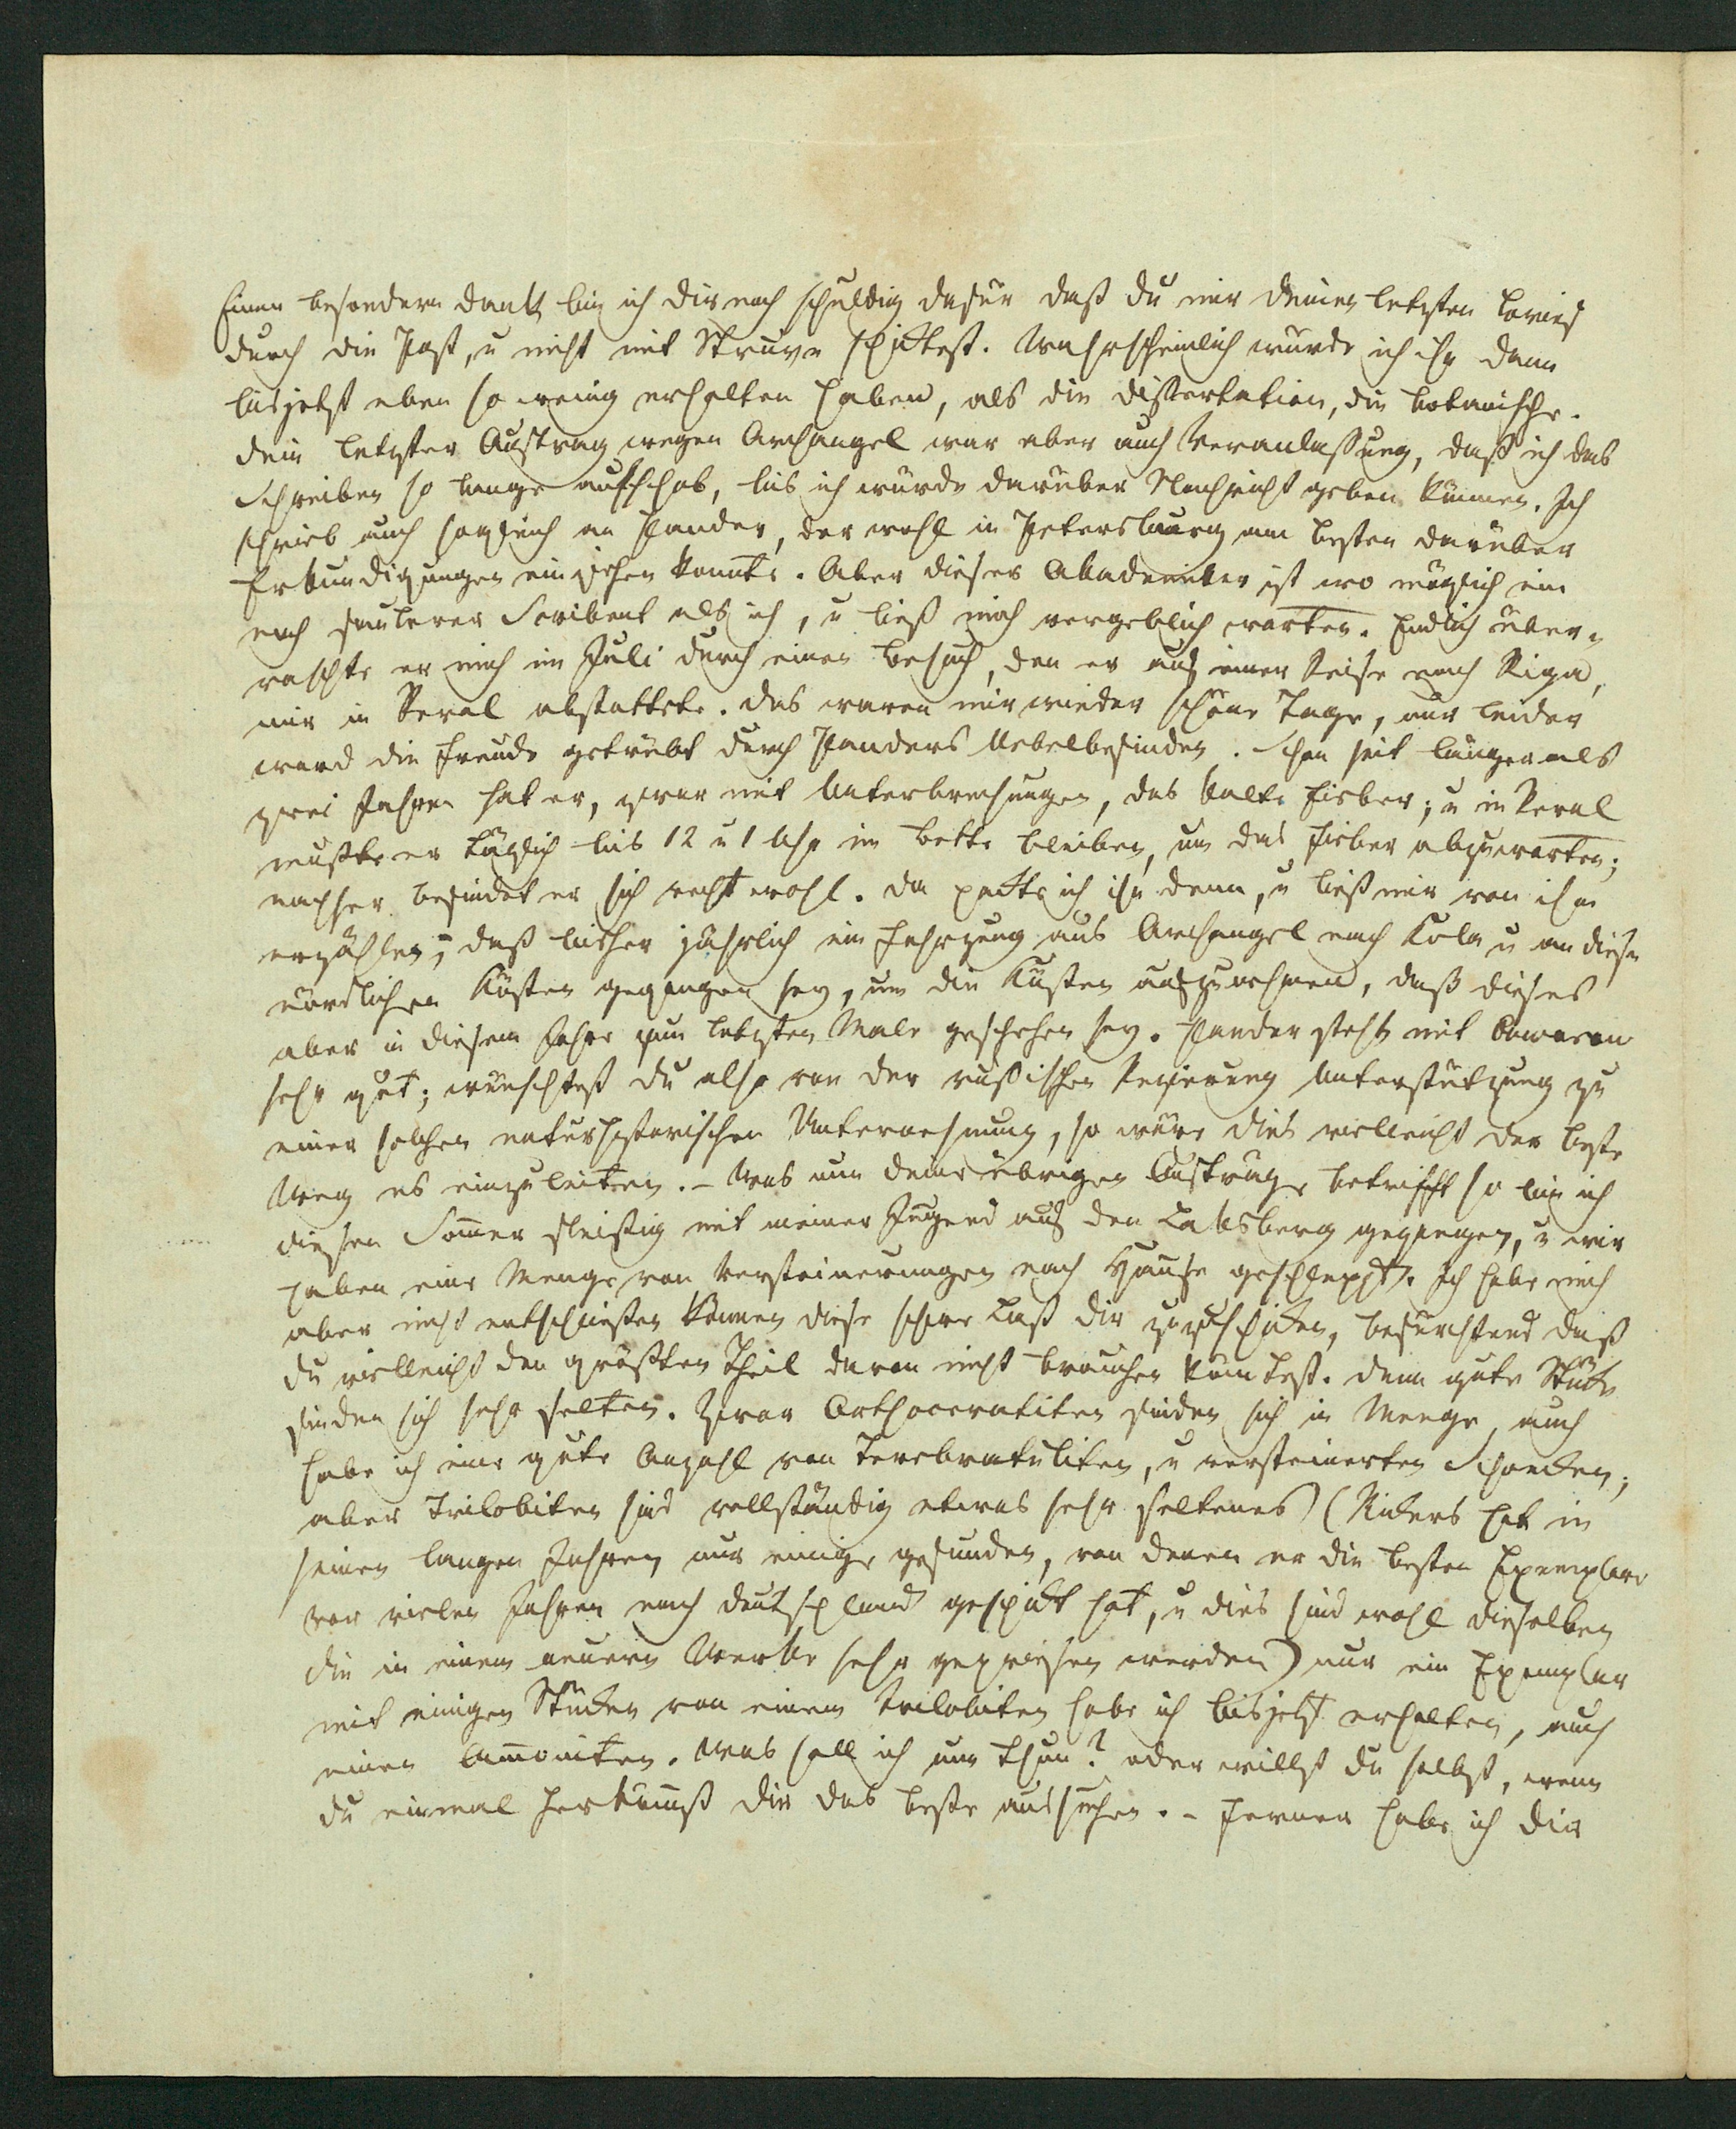 Einen besondern Dank bin ich dir noch schuldig dafür daß du mir deinen letzten Brief
durch die Post, u nicht mit Struve schicktest. Wahrscheinlich würde ich ihn dann
bis jetzt eben so wenig erhalten haben, als die Dissertation, die botanische.
Dein letzter Auftrag wegen Archangel war aber auch Veranlassung, daß ich das
Schreiben so lange aufschob, bis ich würde darüber Nachricht geben können. Ich
schrieb auch sogleich an Pander, der wohl in Petersburg am besten darüber
Erkundigungen einziehen konnte. Aber dieser Akademiker ist wo möglich ein
noch faulerer Scribent als ich, u ließ mich vergeblich warten. Endlich über-
raschte er mich im Juli durch einen Besuch, den er auf einer Reise nach Riga,
mir in Reval abstattete. Das waren mir wieder schöne Tage, nur leider
ward die Freude getrübt durch Panders Uebelbefinden. Schon seit länger als
zwei Jahren hat er, zwar mit Unterbrechungen, das kalte Fieber; u in Reval
mußte er täglich bis 12 u 1 Uhr im Bette bleiben, um das Fieber abzuwarten;
nachher befindet er sich recht wohl. Da packte ich ihn denn, u ließ mir von ihm
erzählen, daß bisher jährlich ein Fahrzeug aus Archangel nach Kola u an diese
nördlichen Küsten gegangen sey, um die Küsten aufzunehmen, daß dieses
aber in diesem Jahre zum letzten Male geschehen sey. Pander steht mit
sehr gut; wünschtest du also von der russischen Regierung Unterstützung zu
einer solchen naturhistorischen Unternehmung, so wäre dies vielleicht der beste
Weg es einzuleiten. – Was nun deine übrigen Aufträge betrifft so bin ich
diesen Sommer fleißig mit meiner Jugend auf den Laksberg gegangen, u wir
haben eine Menge von Versteinerungen nach Hause geschleppt. Ich habe mich
aber nicht entschließen können diese schwere Last dir zuzuschicken, befürchtend daß
du vielleicht den größten Theil davon nicht brauchen könntest. Denn gute Stücke
finden sich sehr selten. Zwar Orthoceratiten finden sich in Menge, auch
habe ich eine gute Anzahl von Terebratuliten, u versteinerten Schnecken;
aber Trilobiten sind vollständig etwas sehr seltenes (Rickers hat in
seinen langen Jahren nur einige gefunden, von denen er die besten Exemplare
vor vielen Jahren nach Deutschland geschickt hat, u dies sind wohl dieselben
die in einem neuern Werke sehr gepriesen werden) nur ein Exemplar
mit einigen Stücken von einem Trilobiten habe ich bis jetzt erhalten, auch
einen Ammoniten. Was soll ich nun thun? oder willst du selbst, wenn
du einmal herkömmst dir das beste aussuchen. – Ferner habe ich dir